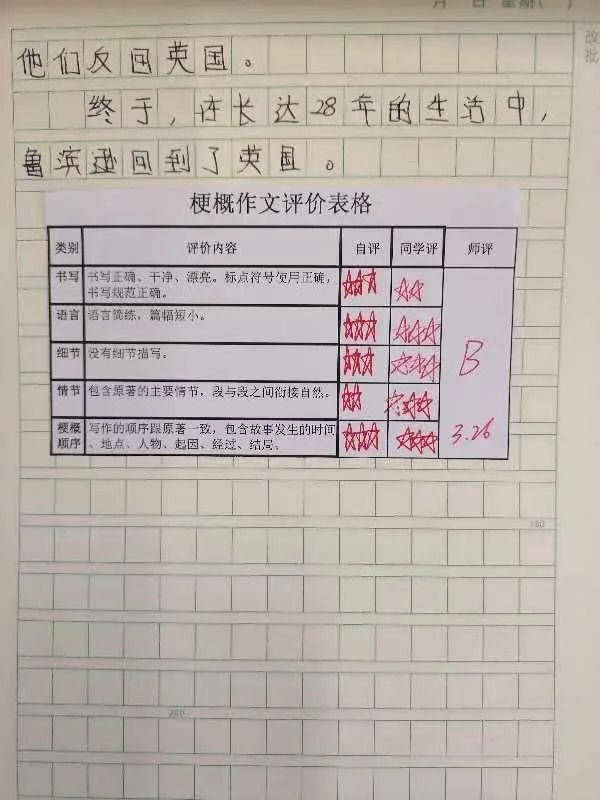 月 日 星期( )
改批
他们反回英国。
终于,在长达28年的生活中,
鲁滨逊回到了英国。
梗概作文评价表格
类别 评价内容 自评 同学评 师评
书写 书写正确、干净、漂亮。标点符号使用正确,
书写规范正确。
语言 语言简练,篇幅短小。
细节 没有细节描写。
B
情节 包含原著的主要情节,段与段之间衔接自然。
梗概 写作的顺序跟原著一致,包含故事发生的时间
顺序 、地点、人物、起因、经过、结局。
3.26
180